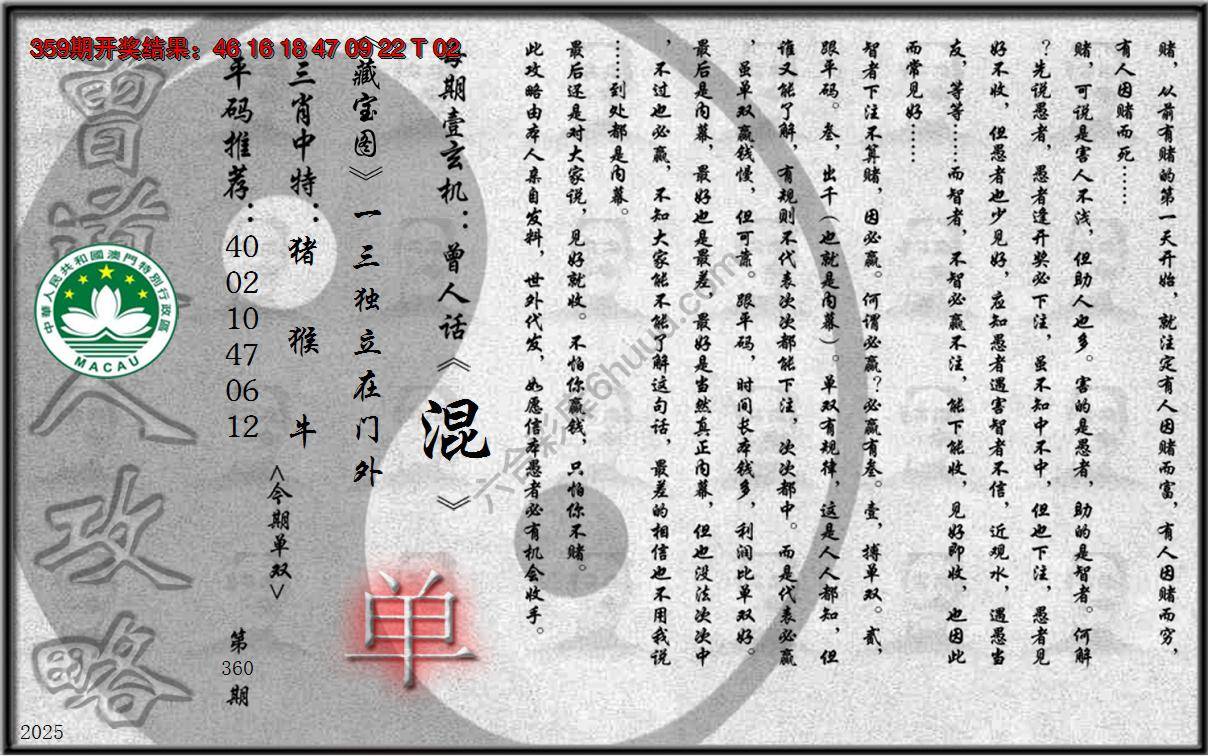 359期开奖结果：46 16 18 47 09 22 T 02
赌，从前有赌的第一天开始，就注定有人因赌而富，有人因赌而穷，
有人因赌而死……
赌，可说是害人不浅，但助人也多。害的是愚者，助的是智者。何解
？先说愚者，愚者逢开奖必下注，虽不知中不中，但也下注，愚者见
好不收，但愚者也少见好，应知愚者遇害智者不信，近观水，遇愚当
友，等等……而智者，不智必赢不注，能下能收，见好即收，也因此
而常见好……
智者下注不算赌，因必赢。何谓必赢？必赢有叁。壹，搏单双。贰，
跟平码。叁，出千（也就是内幕）。单双有规律，这是人人都知，但
谁又能了解，有规则不代表次次都能下注，次次都中。而是代表必赢
，虽单双赢钱慢，但可靠。跟平码，时间长本钱多，利润比单双好。
最后是内幕，最好也是最差，最好是当然真正内幕，但也没法次次中
，不过也必赢，不知大家能不能了解这句话，最差的相信也不用我说
……到处都是内幕。
最后还是对大家说，见好就收。不怕你赢钱，只怕你不赌。
此攻略由本人亲自发料，世外代发，如愿信本愚者必有机会收手。
每期壹玄机：曾人话《混》
《藏宝图》一三独立在门外
三肖中特：猪 猴 牛
平码推荐：40 02 10 47 06 12
<今期单双>
单
第360期
曾道人攻略
中華人民共和國澳門特別行政區
MACAU
六合彩库6huuu.com
2025